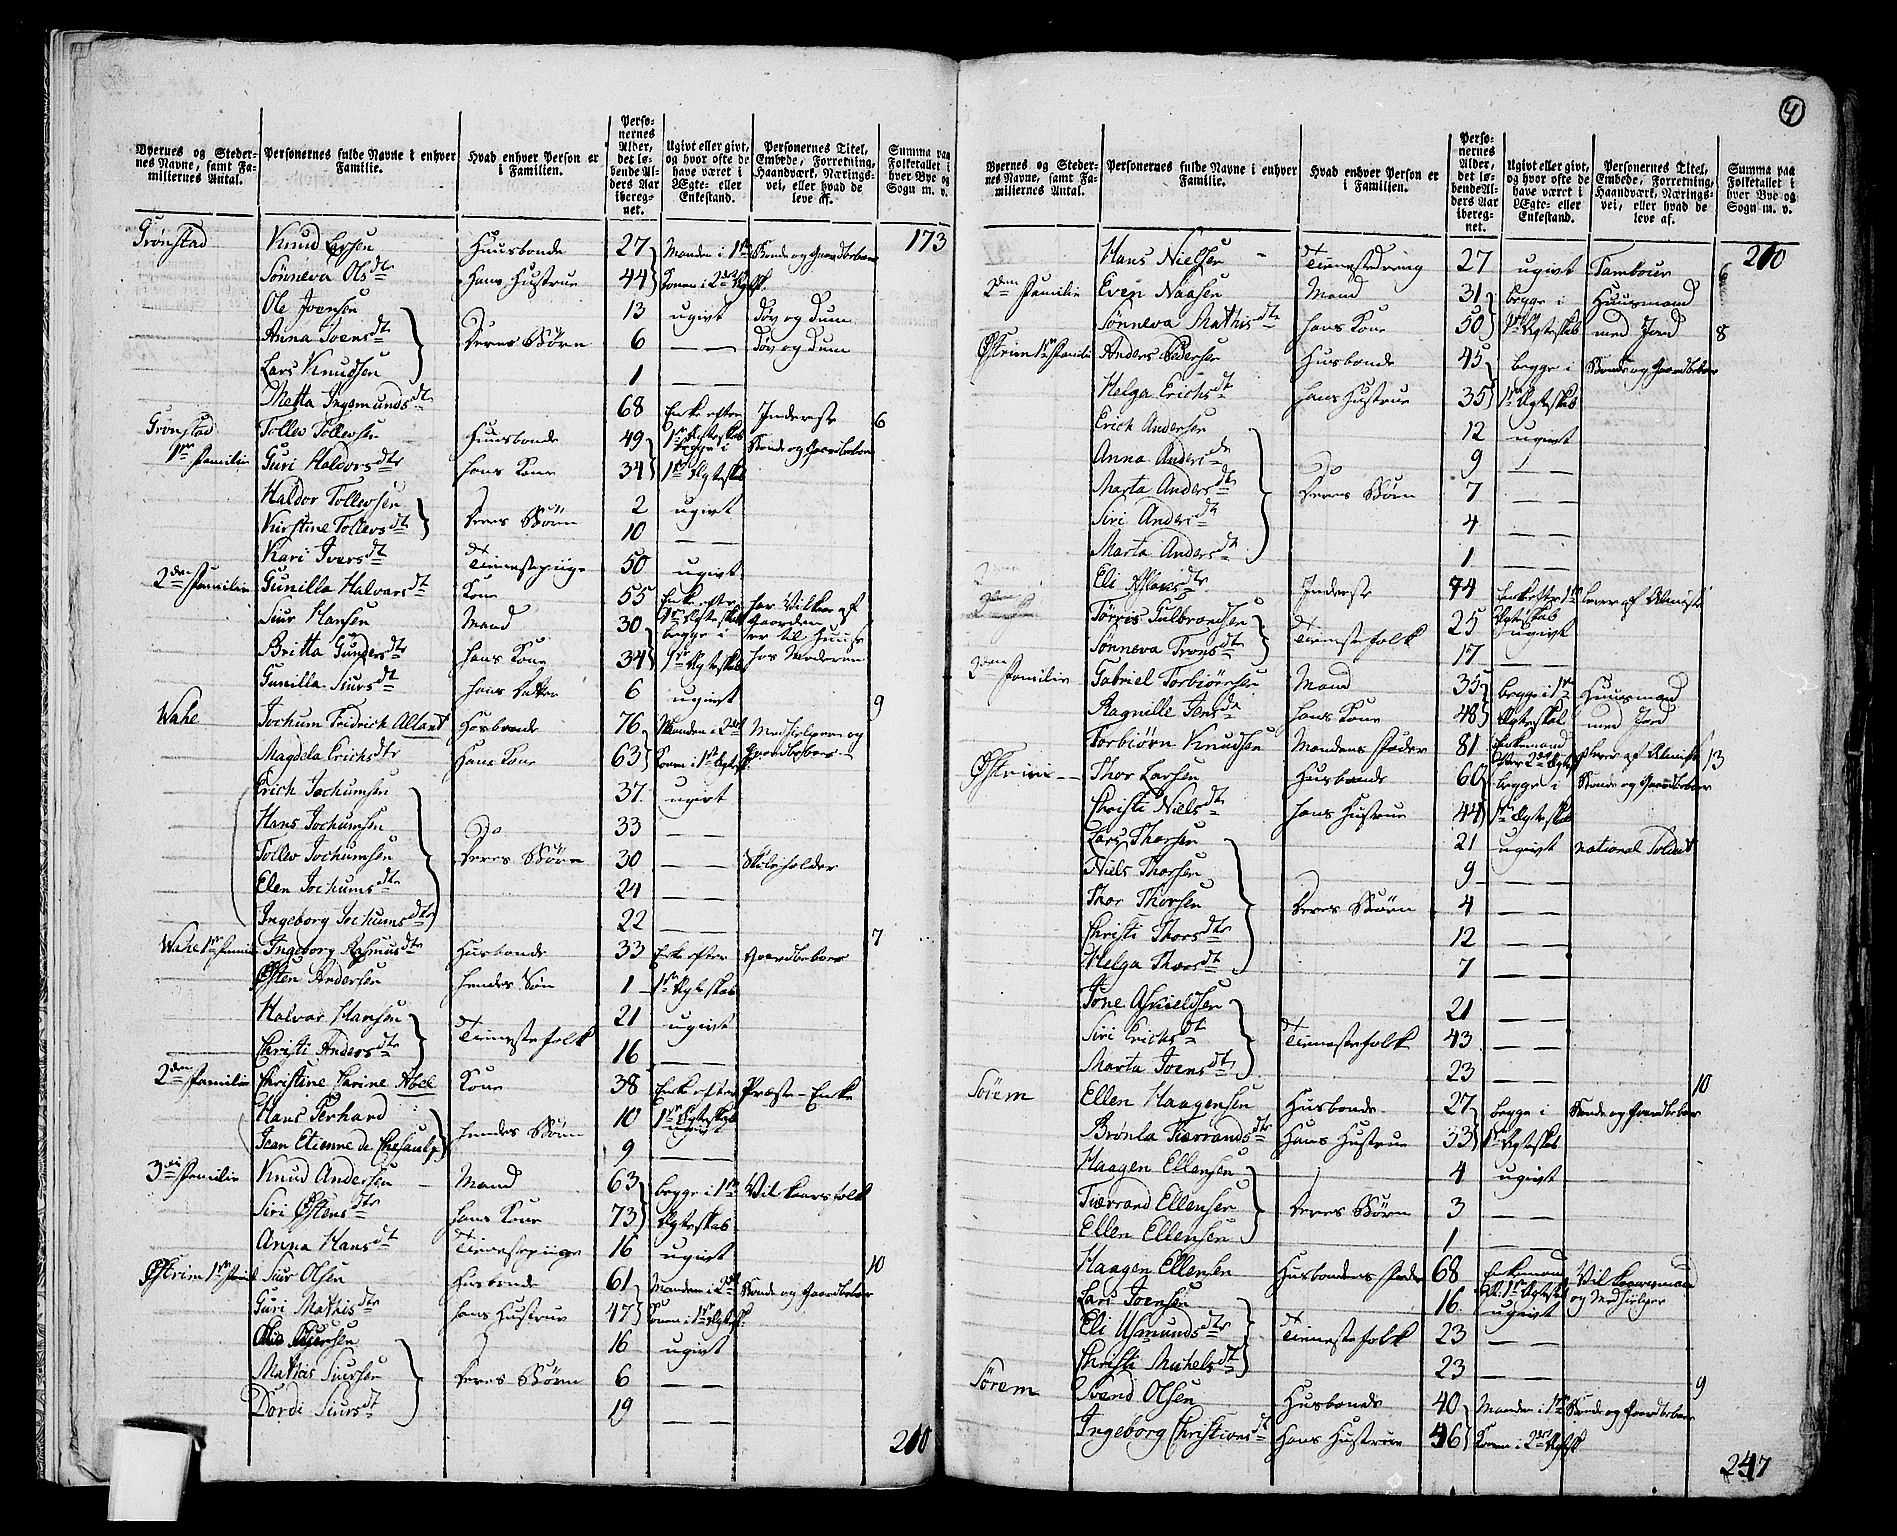 4
Byernes og Stedernes Navne, samt Familiernes Antal.
Personernes fulde Navne i enhver Familie.
Hvad enhver Person er i Familien.
Personernes Alder, det løbende Alders Aar iberegnet.
Ugivt eller givt, og hvor ofte de have været i Ægte- eller Enkestand.
Personernes Titel, Embede, Forretning, Haandværk, Næringsvei, eller hvad de leve af.
Summa paa Folketallet i hver Bye og Sogn m. v.
173
Grönstad Knud Huusbonde 27 Manden i 1ste Bonde og Gaardbeboer
Sönneva Olsdtr Hans Hustrue 44 Konen i 2det Ægtesk.
Ole Joensen 13 ugivt Döv og Dum
Anna Joensdtr Deres Börn 6 — — Döv og Dum
Lars Knudsen 1 — —
Metta Ingemundsdtr 68 Enke efter 1ste Ægteskab Inderste 6
Grönstad Tollev Tollevsen Huusbonde 49 begge i Bonde og Gaardbeboer
1ste Familie Guri Haldorsdtr hans Kone 34 1ste Ægteskab
Haldor Tollevsen 2 ugivt
Kirstine Tollevsdtr Deres Börn 10 — —
Kari Iversdtr Tienestepiige 50 ugivt
2den Familie Gunilla Halvorsdtr Kone 55 Enke efter 1ste Ægteskab har Vilkor af Gaarden
Siur Hansen Mand 30 begge i er til Huuse
Britta Gundersdtr hans Kone 34 1ste Ægteskab hos Moderen
Gunilla Siursdtr hans Datter 6 ugivt 9
Wahe Jochum Fridrich Allant Husbonde 76 Manden i 2det Medhielper og
Magdela Erichsdtr Hans Kone 63 Konen i 1ste Ægtesk. Gaardbeboer
Erich Jochumsen 37 ugivt
Hans Jochumsen 33 — —
Tollev Jochumsen Deres Börn 30 — — Skoleholder
Elen Jochumsdtr 24 — —
Ingeborg Jochumsdtr 22 — — 7
Wahe 1ste Familie Ingeborg Rasmusdtr Husbonde 33 Enke efter Gaardbeboer
Östen Andersen hendes Sön 1 1ste Ægteskab
Halvor Hansen 21 ugivt
Christi Andersdtr Tienestefolk 16 — —
2den Familie Christine Carine Abel Kone 38 Enke efter Præste-Enke
Hans Gerhard 10 1ste Ægteskab ugivt
Jean Etienne de hendes Börn 9 — —
3die Familie Knud Andersen Mand 63 begge i 1ste Vilkaarsfolk
Siri Östensdtr hans Kone 73 Ægteskab
Anna Hansdtr Tienestepiige 16 ugivt 10
Östrim 1ste Familie Siur Olsen Husbonde 61 Manden i 2det Bonde og Gaardbeboer
Guri Mathisdtr hans Hustrue 47 Konen i 1ste Ægtesk.
Siursen 16 ugivt
Mathis Siursen Deres Börn 6 — —
Dordi Siursdtr 19 — —
210
Byernes og Stedernes Navne, samt Familiernes Antal.
Personernes fulde Navne i enhver Familie.
Hvad enhver Person er i Familien.
Personernes Alder, det løbende Alders Aar iberegnet.
Ugivt eller givt, og hvor ofte de have været i Ægte- eller Enkestand.
Personernes Titel, Embede, Forretning, Haandværk, Næringsvei, eller hvad de leve af.
Summa paa Folketallet i hver Bye og Sogn m. v.
210
Hans Nielsen Tienestedreng 27 ugivt Tambour 6
2den Familie Even Naasen Mand 31 begge i Huusmand
Sönneva Mathisdtr hans Kone 50 1ste Ægteskab med Jord 8
Östrim 1ste Familie Anders Pedersen Husbonde 45 begge i Bonde og Gaardbeboer
Helga Erichsdtr hans Hustrue 35 1ste Ægteskab
Erich Andersen 12 ugivt
Anna Andersdtr 9 — —
Marta Andersdtr Deres Börn 7 — —
Siri Andersdtr 4 — —
Marta Andersdtr 1 — —
Eli Inderste 74 Enke efter 1ste Ægteskab lever af Almisse
Törris Gulbrandsen 25 ugivt
Sönneva Tronsdtr Tienestefolk 17 — —
2den Familie Gabriel Torbiörnsen Mand 35 begge i 1ste Huusmand
Ragnille Jensdtr hans Kone 48 Ægteskab med Jord
Torbiörn Knudsen Mandens Fader 81 Enkemand efter 2det Ægtesk. lever af Almisse 13
Östrim Thor Larsen Husbonde 60 begge i Bonde og Gaardbeboer
Christi Nielsdtr hans Hustrue 44 1ste Ægteskab
Lars Thorsen 21 ugivt national Soldat
Niels Thorsen 9 — —
Thor Thorsen Deres Börn 4 — —
Christi Thorsdtr 12 — —
Helga Thorsdtr 7 — —
Tone 21 — —
Siri Erichsdtr Tienestefolk 43 — —
Marta Joensdtr 23 — — 10
Sörem Ellen Haagensen Husbonde 27 begge i Bonde og Gaardbeboer
Brönla Tiærrandsdtr Hans Hustrue 33 1ste Ægteskab
Haagen Ellensen 4 ugivt
Tiærrand Ellensen Deres Börn 3 — —
Ellen Ellensen 1 — —
Haagen Ellensen Husbondens Fader 68 Enkemand af 1ste Ægteskab Vilkaarsmand og Medhielper
Lars Joensen 16 ugivt
Eli Asmundsdtr Tienestefolk 23 — —
Christi Michelsdtr 23 — — 9
Sörem Svend Olsen Husbonde 40 Manden i 1ste Bonde og Gaardbeboer
Ingeborg Christiansdtr Hans Hustrue 46 Konen i 2det Ægtesk.
247